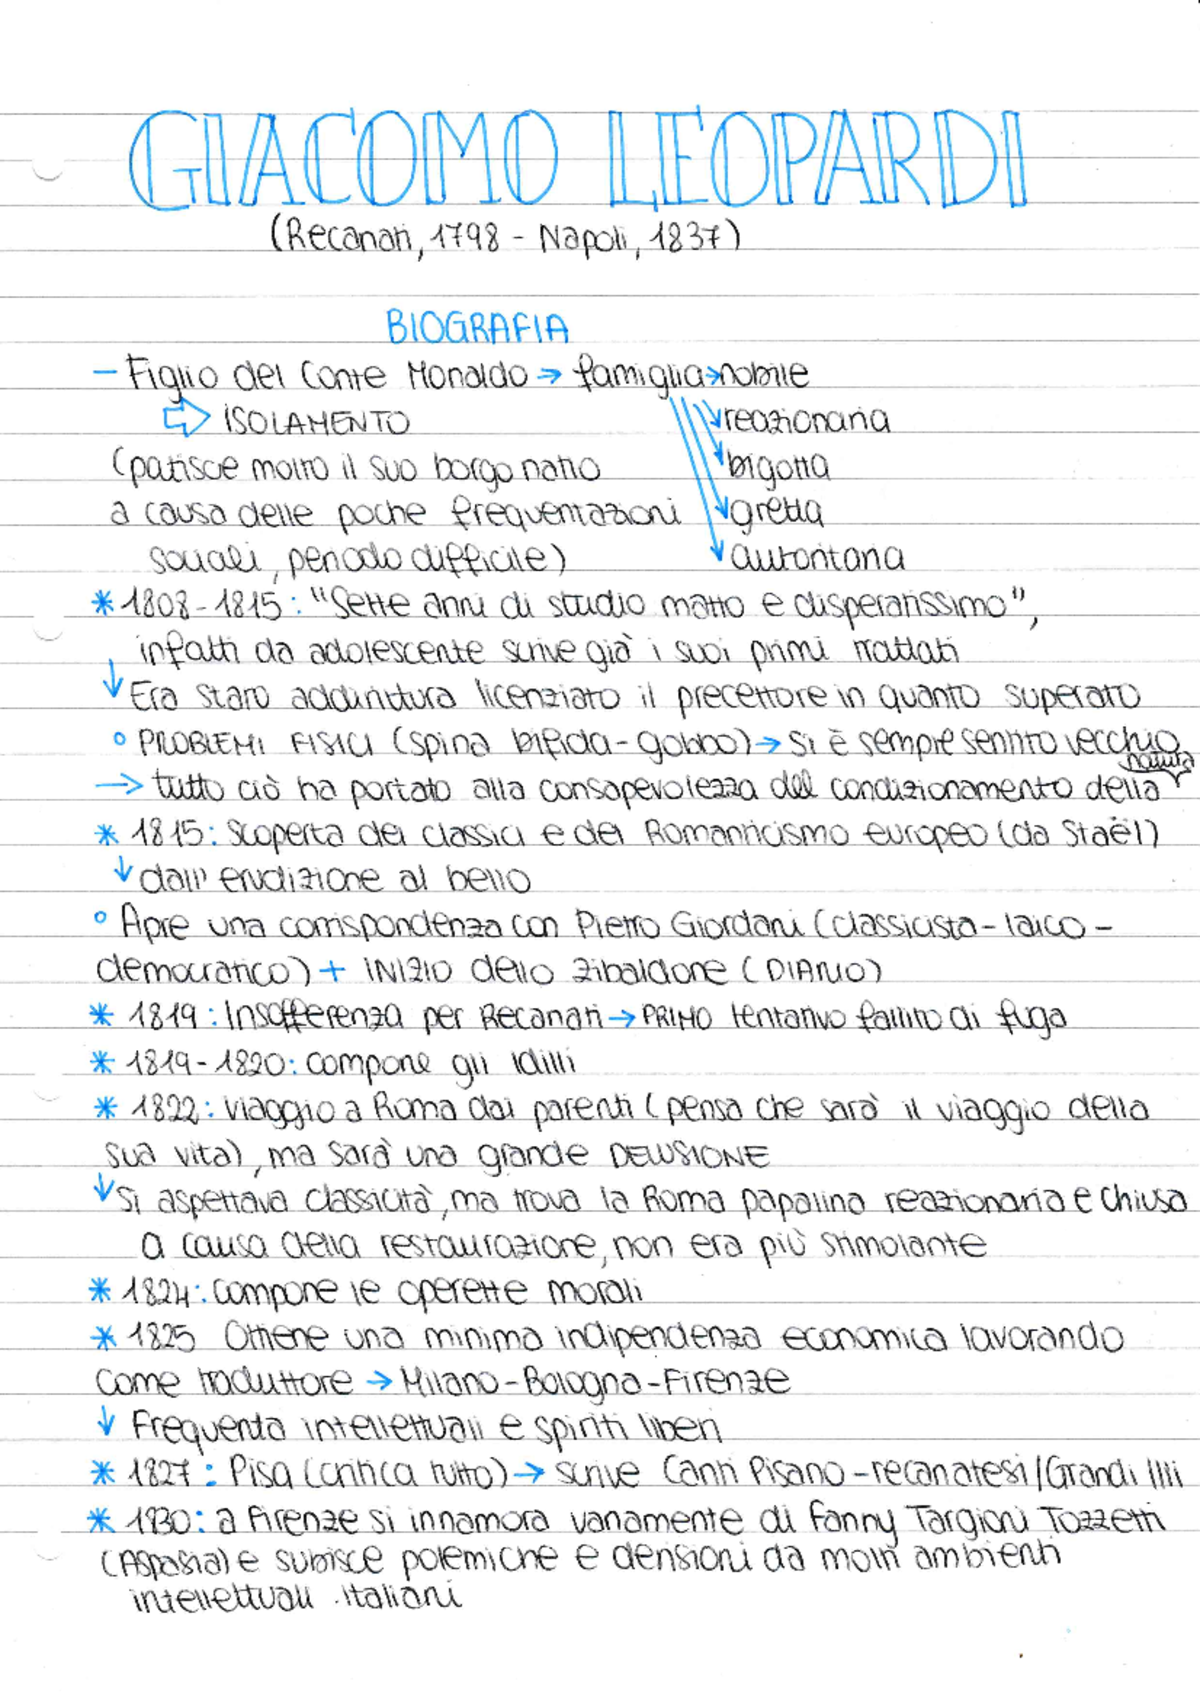 GIACOMO LEOPARDI
(Recanati, 1798 - Napoli, 1837)
BIOGRAFIA
- Figlio del Conte Monaldo → famiglia → nobile
⇨ ISOLAMENTO ↘ reazionaria
(patisce molto il suo borgo natio ↘ bigotta
a causa delle poche frequentazioni ↘ gretta
sociali, periodo difficile) ↘ autoritaria
* 1808-1815: "Sette anni di studio matto e disperatissimo",
infatti da adolescente scrive già i suoi primi trattati
↓ Era stato addirittura licenziato il precettore in quanto superato
° PROBLEMI FISICI (spina bifida-gobbo) → si è sempre sentito vecchio
→ tutto ciò ha portato alla consapevolezza del condizionamento della natura
* 1815: scoperta dei classici e del Romanticismo europeo (da Staël)
↓ dall'erudizione al bello
° Apre una corrispondenza con Pietro Giordani (classicista-laico-
democratico) + INIZIO dello Zibaldone (DIARIO)
* 1819: Insofferenza per Recanati → PRIMO tentativo fallito di fuga
* 1819-1820: compone gli Idilli
* 1822: viaggio a Roma dai parenti (pensa che sarà il viaggio della
sua vita), ma sarà una grande DELUSIONE
↓ Si aspettava classicità, ma trova la Roma papalina reazionaria e chiusa
a causa della restaurazione, non era più stimolante
* 1824: compone le operette morali
* 1825 Ottiene una minima indipendenza economica lavorando
come traduttore → Milano-Bologna-Firenze
↓ Frequenta intellettuali e spiriti liberi
* 1827: Pisa (critica tutto) → scrive Canti Pisano-recanatesi/Grandi Illi
* 1830: a Firenze si innamora vanamente di Fanny Targioni Tozzetti
(Aspasia) e subisce polemiche e derisioni da molti ambienti
intellettuali italiani